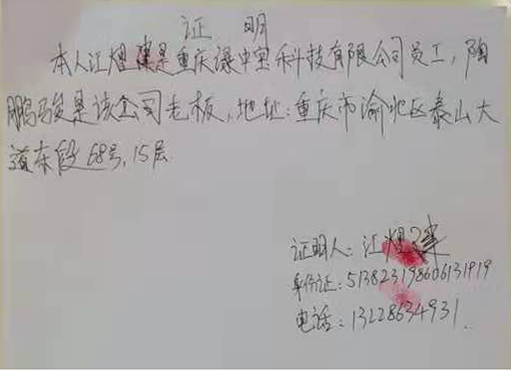 证 明
本人江煜建是重庆绿中宝科技有限公司员工，陶
鹏骏是该公司老板，地址：重庆市渝北区泰山大
道东段68号，15层
证明人：江煜建
身份证：513823198606131919
电话：13228634931.